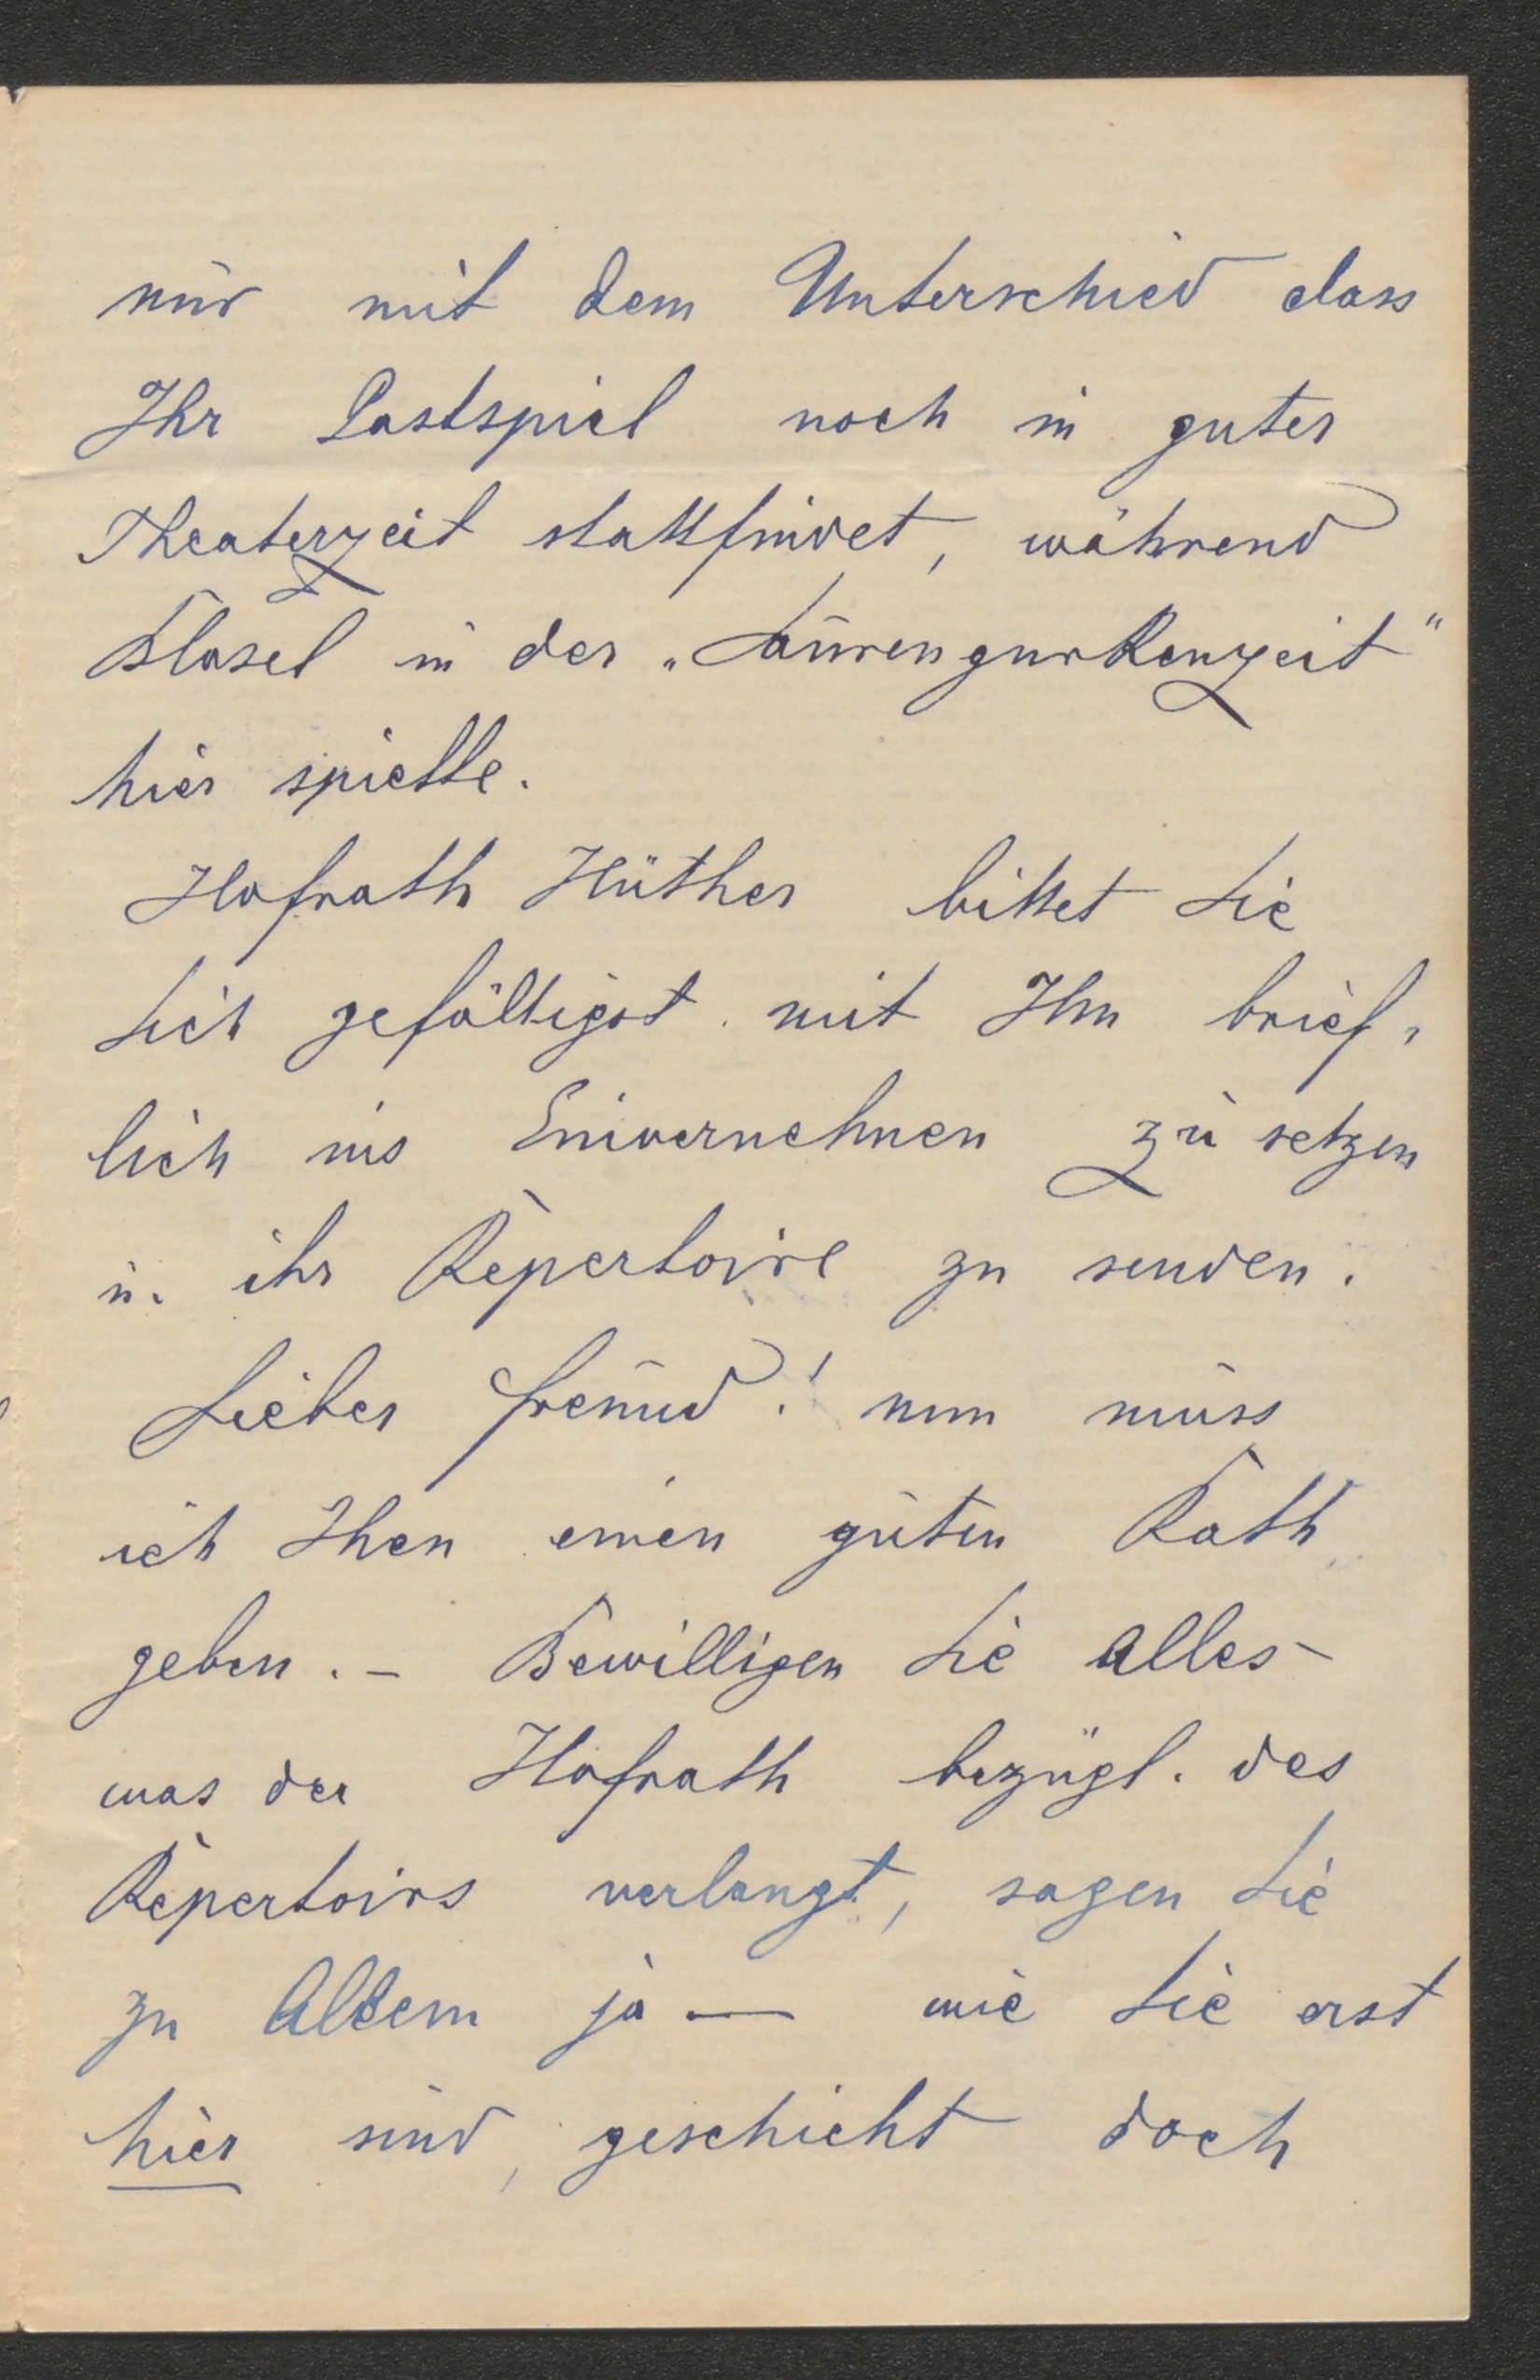 nur mit dem Unterschied dass
Ihr Gastspiel noch in guter
Theaterzeit stattfindet, während
Blasel in der „Saurengurkenzeit“
hier spielte.
Hofrath Hüther bittet Sie
Sich gefälligst mit Ihm brief-
lich ins Einvernehmen zu setzen
u. ihr Repertoire zu senden.
Lieber Freund! nun muss
ich Ihen einen guten Rath
geben. – Bewilligen Sie Alles
was der Hofrath bezügl. des
Repertoirs verlangt, sagen Sie
zu Allem ja — wie Sie erst
hier sind, geschieht doch